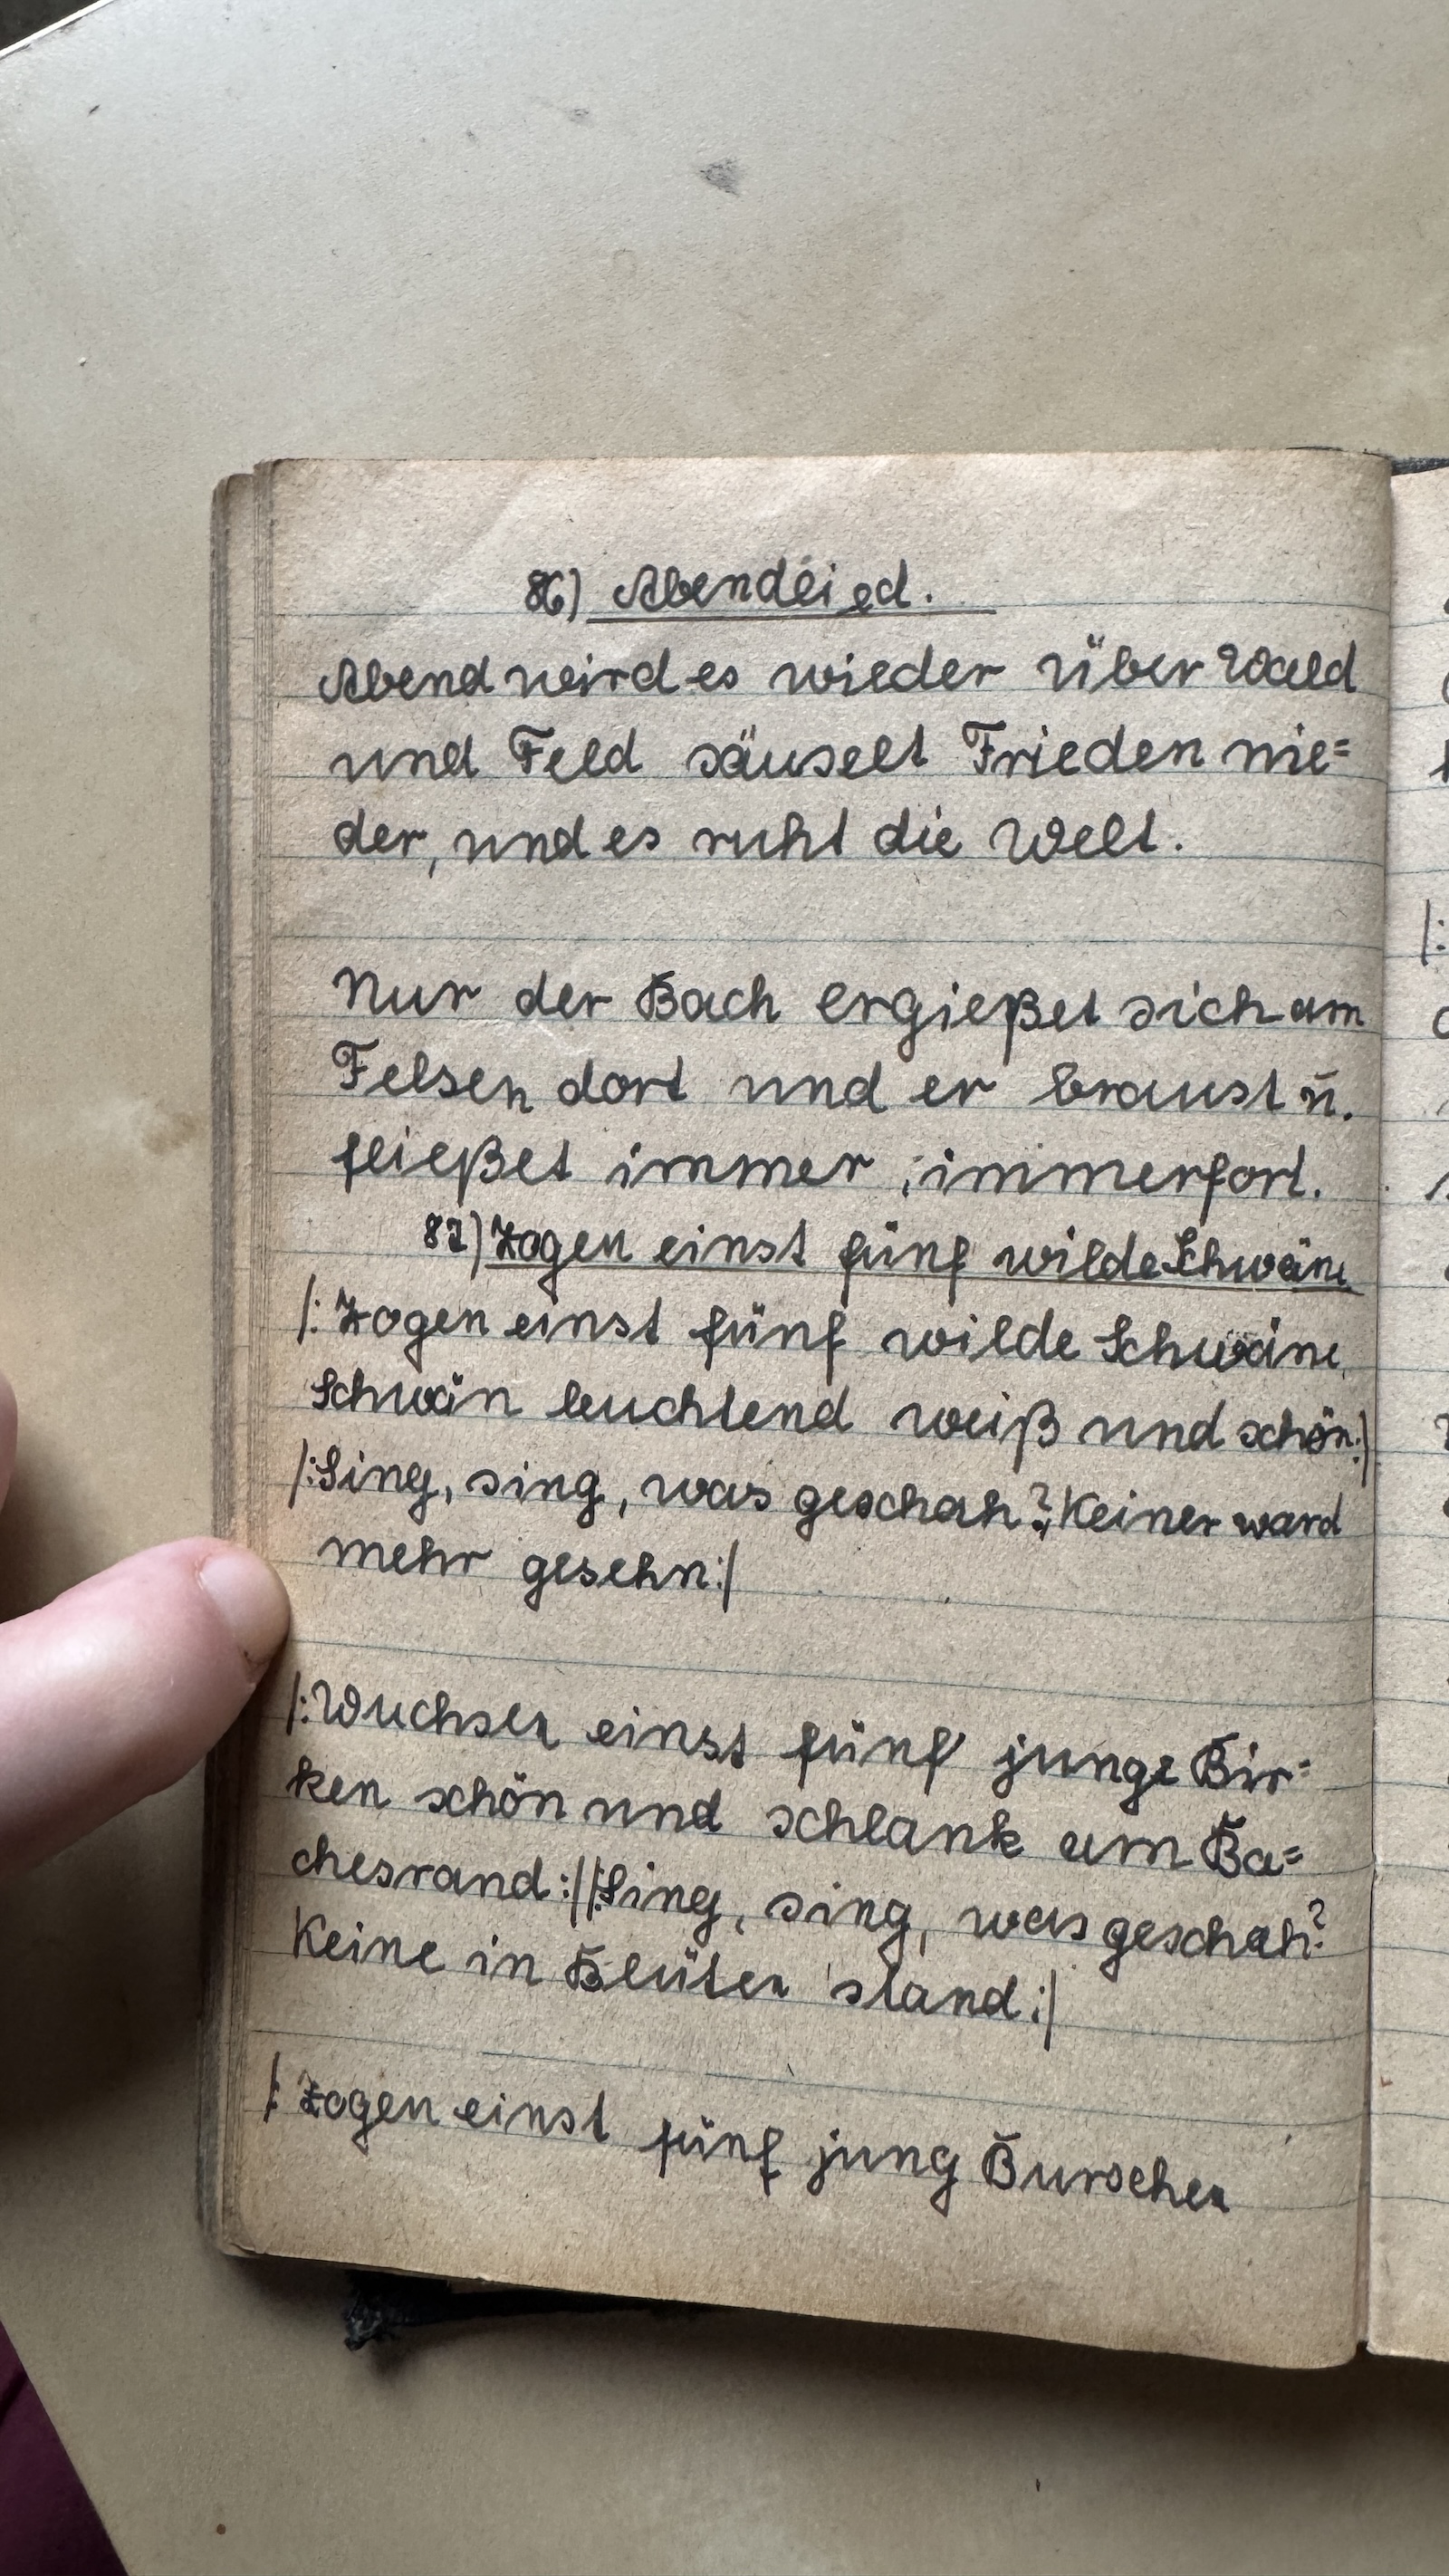 86) Abendlied.
Abend wird es wieder über Wald
und Feld säuselt Frieden nie=
der, und es ruht die Welt.
Nur der Bach ergießet sich am
Felsen dort und er braust ū.
fließet immer, immerfort.
87) Zogen einst fünf wilde Schwäne
/: Zogen einst fünf wilde Schwäne,
Schwän leuchtend weiß und schön:/
/: Sing, sing, was geschah? Keiner ward
mehr gesehn:/
/: Wuchsen einst fünf junge Bir=
ken schön und schlank am Ba=
chesrand:/ /: Sing, sing, was geschah?
Keine in Blüten stand:/
/: Zogen einst fünf jung Burschen